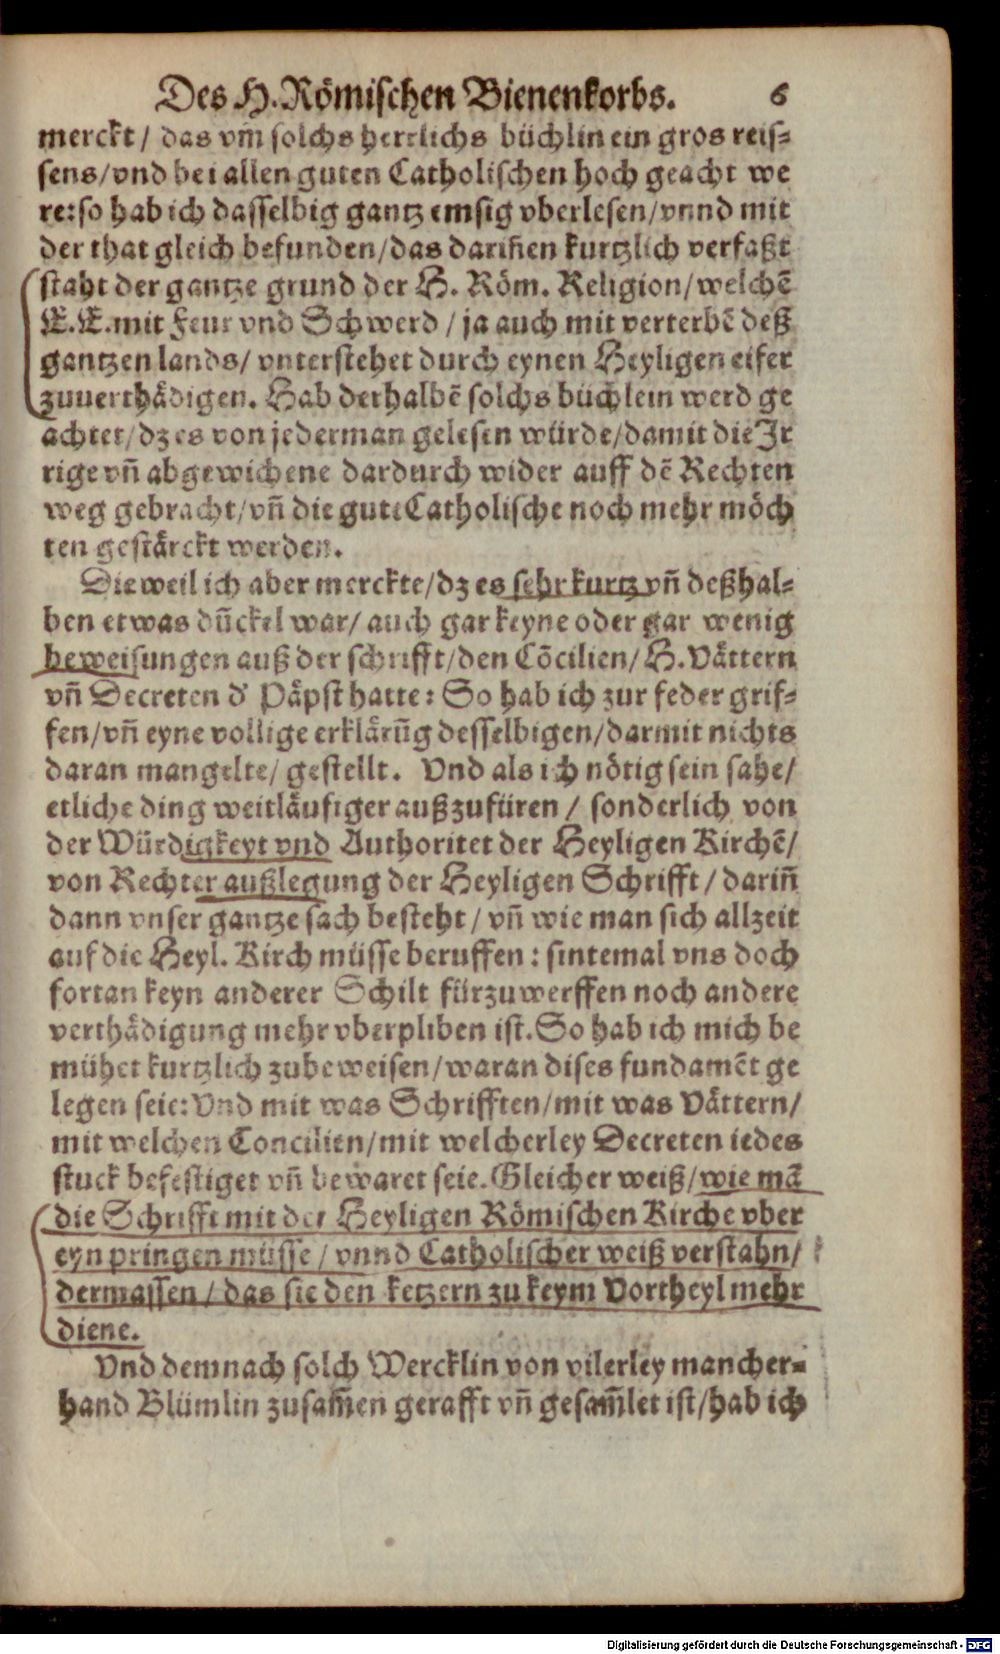 Des H. Römischen Bienenkorbs. 6
merckt / das vm̃ solchs herrlichs büchlin ein gros reis⸗
sens/vnd bei allen guten Catholischen hoch geacht we
re: so hab ich dasselbig gantz emsig vberlesen/vnnd mit
der that gleich befunden/das dariñen kurtzlich verfaßt
staht der gantze grund der H. Röm. Religion/welchẽ
E.E. mit Feur vnd Schwerd / ja auch mit verterbẽ deß
gantzen lands/ vnterstehet durch eynen Heyligen eifer
zuuerthädigen. Hab derhalbẽ solchs büchlein werd ge
achtet/dz es von jederman gelesen würde/damit die Jr
rige vñ abgewichene dardurch wider auff dẽ Rechten
weg gebracht/vñ die gute Catholische noch mehr möch
ten gestärckt werden.
Dieweil ich aber merckte/dz es sehr kurtz vñ deßhal⸗
ben etwas dũckel war/ auch gar keyne oder gar wenig
beweisungen auß der schrifft/den Cõcilien/ H. Vättern
vñ Decreten d' Päpst hatte: So hab ich zur feder grif⸗
fen/vñ eyne vollige erklärũg desselbigen/darmit nichts
daran mangelte/ gestellt. Vnd als ich nötig sein sahe/
etliche ding weitläufiger außzufüren / sonderlich von
der Würdigkeyt vnd Authoritet der Heyligen Kirchẽ/
von Rechter außlegung der Heyligen Schrifft / dariñ
dann vnser gantze sach besteht / vñ wie man sich allzeit
auf die Heyl. Kirch müsse beruffen : sintemal vns doch
fortan keyn anderer Schilt fürzuwerffen noch andere
verthädigung mehr vberpliben ist. So hab ich mich be
mühet kurtzlich zubeweisen/waran dises fundamẽt ge
legen seie: Vnd mit was Schrifften/mit was Vättern/
mit welchen Concilien/mit welcherley Decreten iedes
stuck befestiget vñ bewaret seie. Gleicher weiß/wie mã
die Schrifft mit der Heyligen Römischen Kirche vber
eyn pringen müsse / vnnd Catholischer weiß verstahn/
dermassen / das sie den ketzern zu keym Vortheyl mehr
diene.
Vnd demnach solch Wercklin von vilerley mancher⸗
hand Blümlin zusam̃en gerafft vñ gesam̃let ist/hab ich
Digitalisierung gefördert durch die Deutsche Forschungsgemeinschaft - DFG